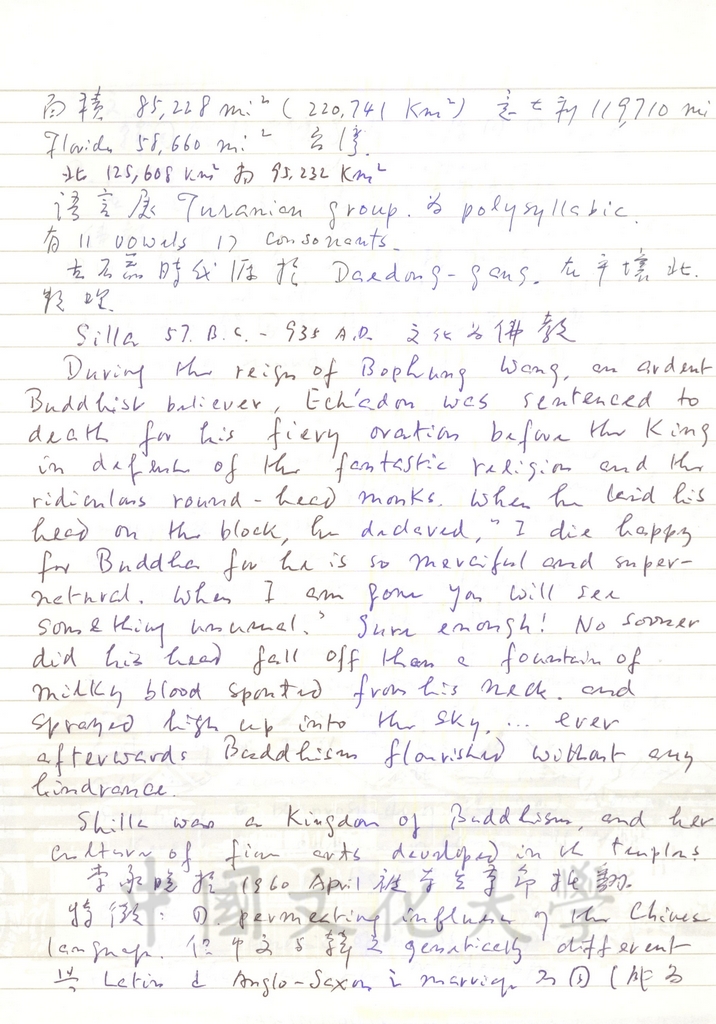 面積 85,228 mi² (220,741 Km²) 意大利 119,710 mi
Florida 58,660 mi² 台灣
北 125,608 Km² 南 95,232 Km²
語言屬 Turanian group. 為 polysyllabic.
有 11 vowels 17 consonants.
舊石器時代 於 Daedong-gang. 在平壤北
Silla 57. B.C. - 935 A.D. 文化為佛教
During the reign of Bophung Wang, an ardent
Buddhist believer, Echadon was sentenced to
death for his fiery oration before the King
in defense of the fantastic religion and the
ridiculous round-head monks. When he laid his
head on the block, he declared, "I die happy
for Buddha for he is so merciful and super-
natural. When I am gone you will see
something unusual." Sure enough! No sooner
did his head fall off than a fountain of
milky blood spouted from his neck. and
sprayed high up into the sky, ... ever
afterwards Buddhism flourished without any
hindrance.
Shilla was a Kingdom of Buddhism, and her
culture of fine arts developed in the temples
李承晚於 1960 April 被學生革命推翻.
特徵: ①. permeating influence of the Chinese
language. 但中文與韓文 genetically different
Latin Anglo-Saxon 之 marriage 不同 (
中國文化大學